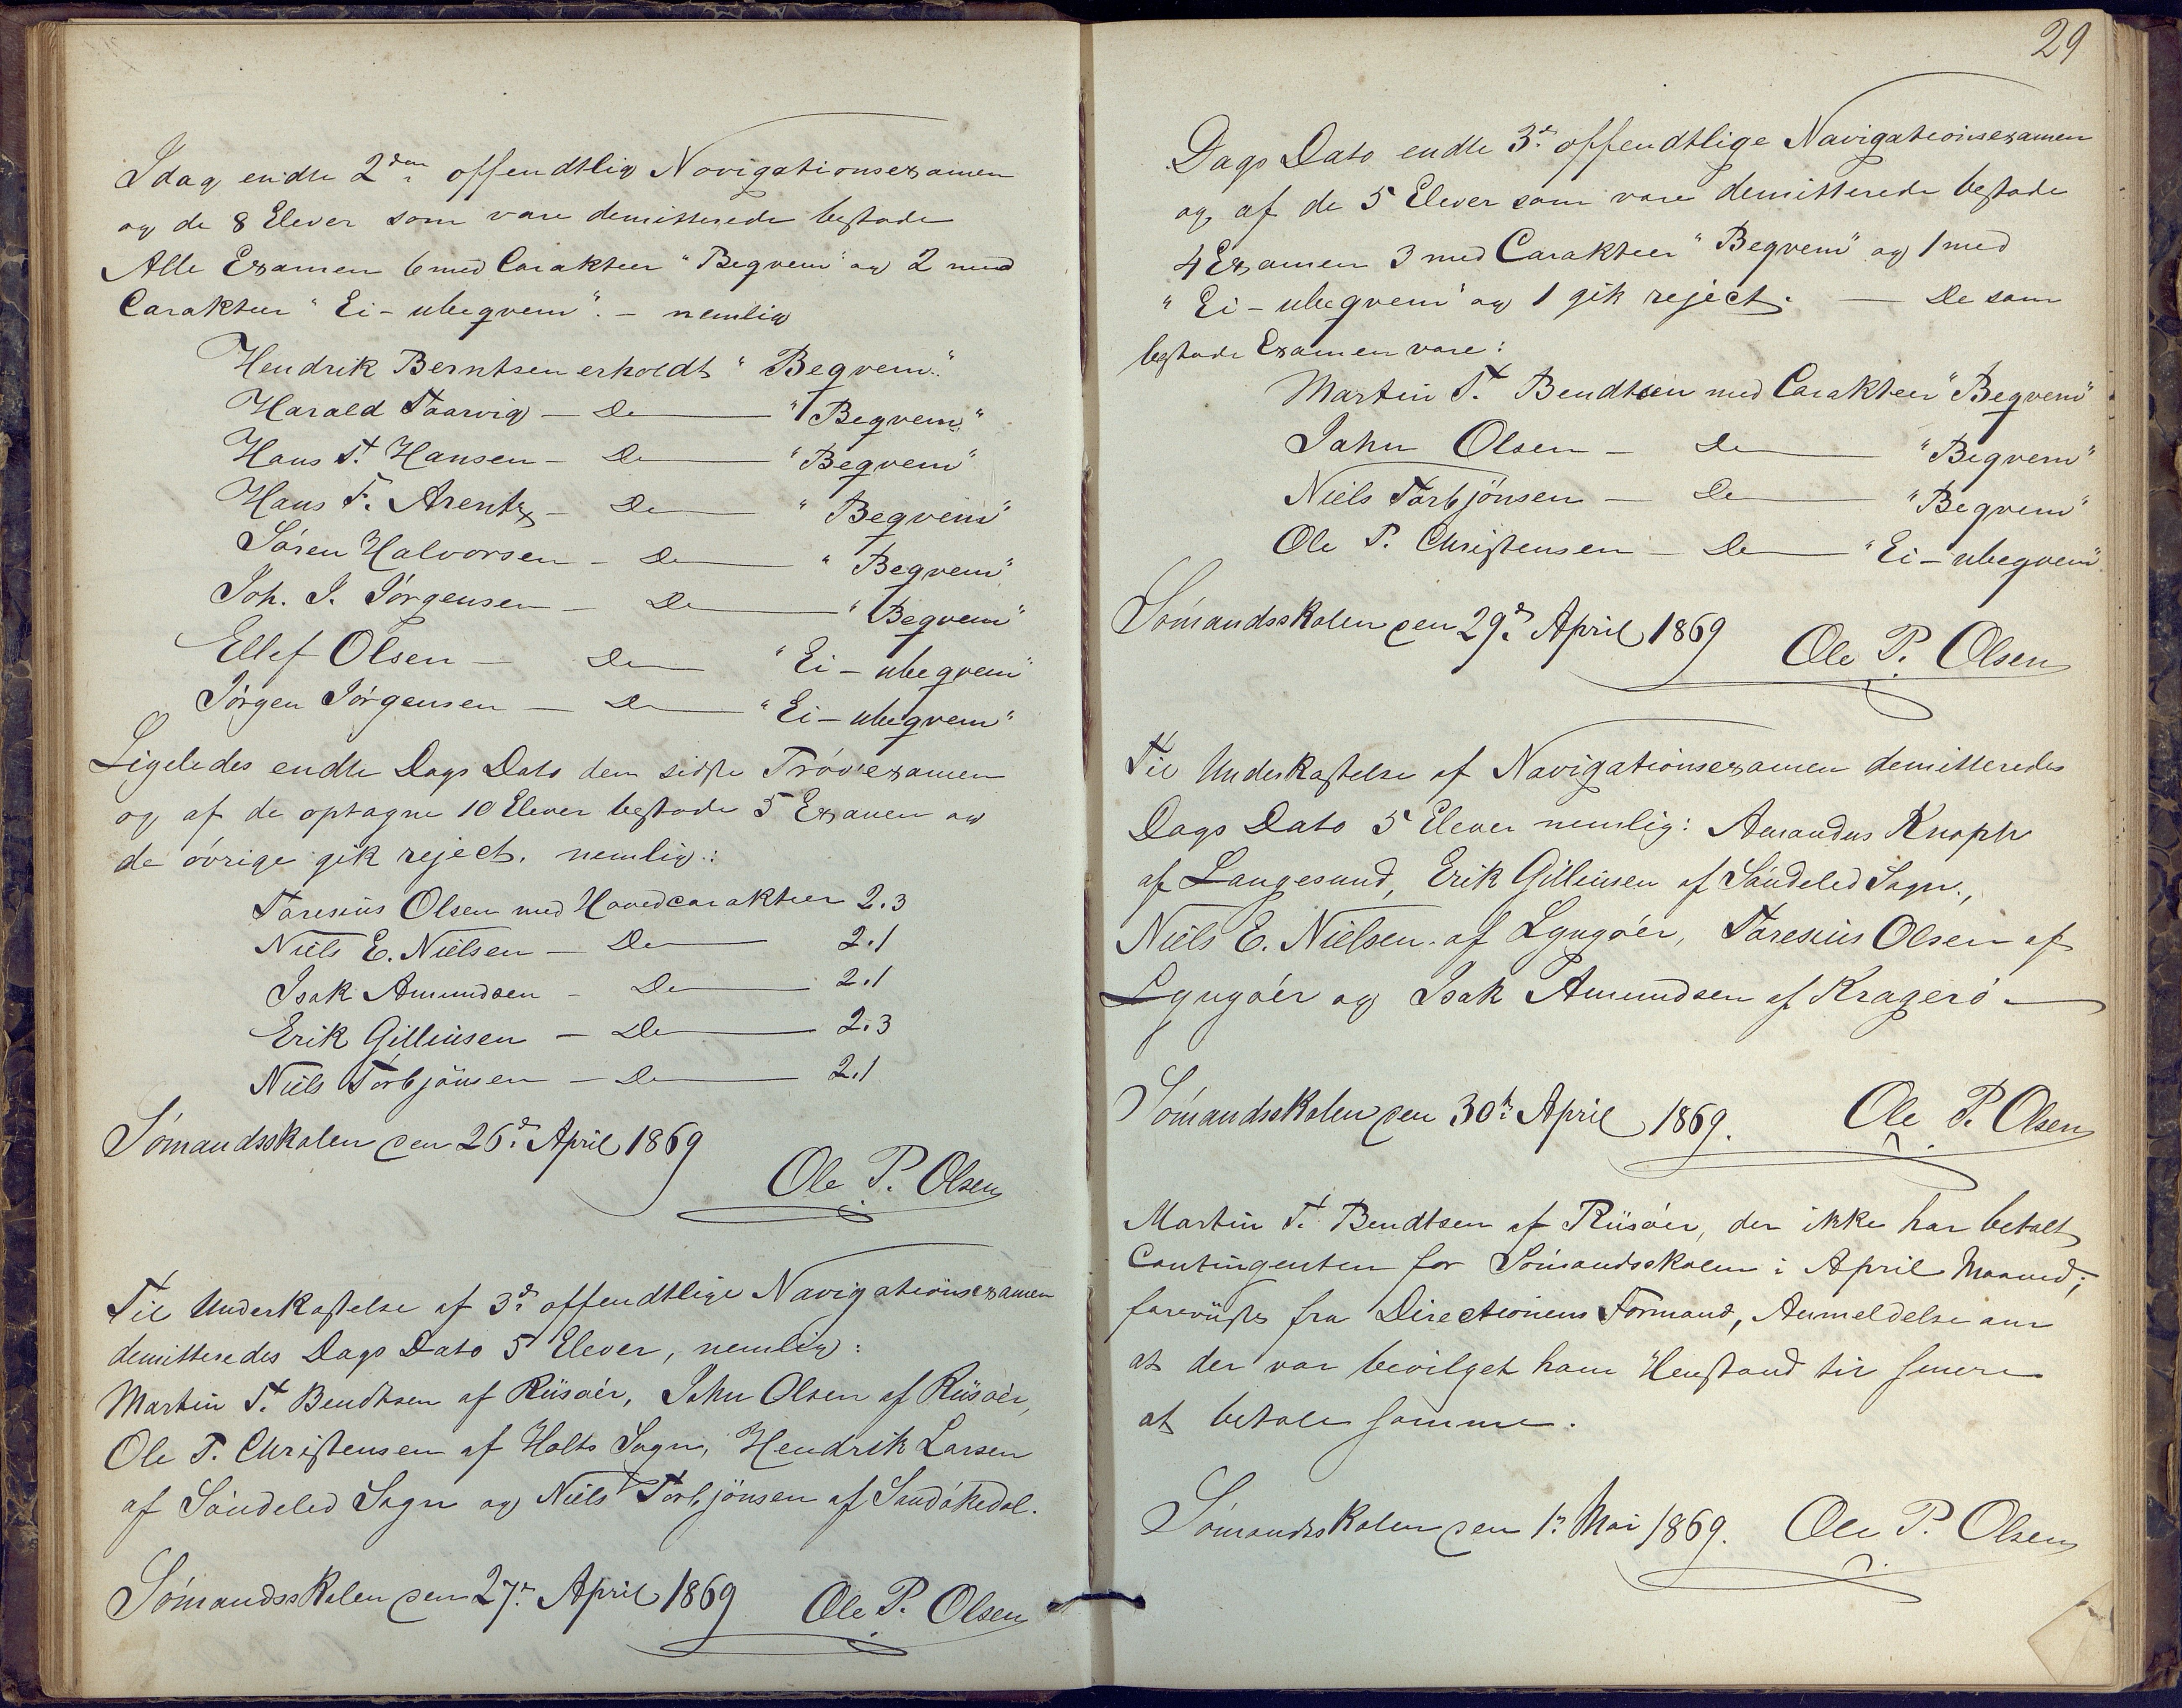 Idag endte 2den offendtlig Navigationsexamen
og de 8 Elever som vare demitterede bestode
Alle Examen 6 med Carakteer "Begvem" og 2 med
Carakteer "Ei-ubegvem". - nemlig
Hendrik Berntsen erholdt "Begvem".
Harald Taarvig - Do "Begvem"
Hans T. Hansen - Do "Begvem"
Hans F. Arentz - Do "Begvem"
Sören Halvorsen - Do "Begvem"
Joh. J. Jörgensen - Do "Begvem"
Ellef Olsen - Do "Ei-ubegvem"
Jörgen Jörgensen - Do "Ei-ubegvem"
Ligeledes endte Dags Dato den sidste Pröveexamen
og af de optagne 10 Elever bestode 5 Examen og
de övrige gik reject. nemlig:
Taresius Olsen med Hovedcarakteer 2.3
Niels E. Nielsen - Do 2.1
Isak Amundsen - Do 2.1
Erik Gilleusen - Do 2.3
Niels Torbjönsen - Do 2.1
Sömandsskolen den 26d. April 1869
Ole P. Olsen
Til Underkastelse af 3d. offendtlige Navigationsexamen
demitteredes Dags Dato 5 Elever, nemlig:
Martin T. Bendtsen af Riisöer, John Olsen af Riisöer,
Ole P. Christensen af Holts Sogn, Hendrik Larsen
af Söndeled Sogn og Niels Torbjönsen af Sandökedal.
Sömandsskolen den 27d. April 1869 Ole P. Olsen
29
Dags Dato endte 3d. offendtlige Navigationsexamen
og af de 5 Elever som vare demitterede bestode
4 Examen 3 med Carakteer "Begvem" og 1 med
"Ei-ubegvem" og 1 gik reject. - De som
bestode Examen vare:
Martin T. Bendtsen med Carakteer "Begvem"
John Olsen - Do "Begvem"
Niels Torbjönsen - Do "Begvem"
Ole P. Christensen - Do "Ei-ubegvem"
Sömandsskolen den 29d. April 1869 Ole P. Olsen
Til Underkastelse af Navigationsexamen demitteredes
Dags Dato 5 Elever nemlig: Amandus Knoph
af Langesund, Erik Gilleusen af Söndeled Sogn,
Niels E. Nielsen af Lyngöer, Taresius Olsen af
Lyngöer og Isak Amundsen af Kragerö -
Sömandsskolen den 30te April 1869. Ole P. Olsen
Martin T. Bendtsen af Riisöer, der ikke har betalt
Contingenten for Sömandsskolen i April Maaned,
foreviiste fra Directionens Formand, Anmeldelse om
at der var bevilget ham Henstand til senere
at betale samme.
Sömandsskolen den 1d. Mai 1869. Ole P. Olsen